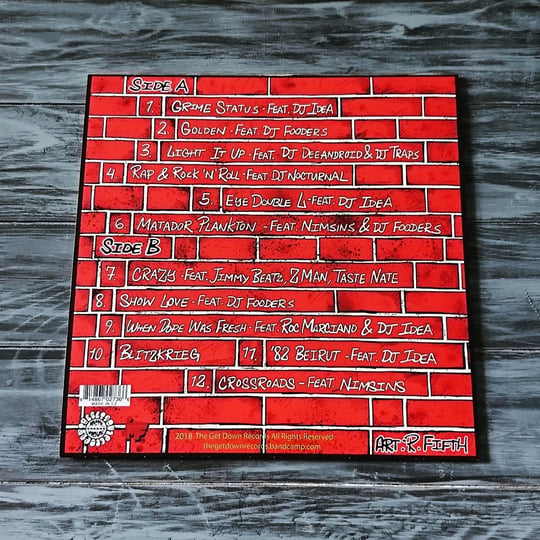 SIDE A
1. GRIME STATUS - FEAT. DJ IDEA
2. GOLDEN - FEAT. DJ FOODERS
3. LIGHT IT UP - FEAT. DJ DEEANDROID & DJ TRAPS
4. RAP & ROCK 'N' ROLL - FEAT DJ NOCTURNAL
5. EYE DOUBLE L - FEAT. DJ IDEA
6. MATADOR PLANKTON - FEAT. NIMSINS & DJ FOODERS
SIDE B
7. CRAZY - FEAT. JIMMY BEATZ, Z MAN, TASTE NATE
8. SHOW LOVE - FEAT. DJ FOODERS
9. WHEN DOPE WAS FRESH - FEAT. ROC MARCIANO & DJ IDEA
10. BLITZKRIEG 11. '82 BEIRUT - FEAT. DJ IDEA
12. CROSSROADS - FEAT. NIMSINS
MADE IN CZ
2018 The Get Down Records All Rights Reserved
thegetdownrecords.bandcamp.com
ART: R. FIFTH